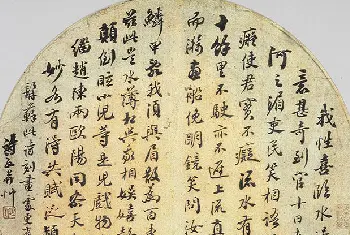 我性喜臨水
意甚奇到官十日来九
河之湄吏民笑相語
癡使君實不癡流水有
十餘里不駛亦不遲上流直
而漪画船俯明鏡笑問汝
鱗甲亂我須與眉散為百東
茲此豈水薄相與我相娛嬉
顛倒眩小兒等是兒戲物
緇趙陳兩歐陽同參天
妙各有得共賦泛潁
髯蘇此詩刻畫